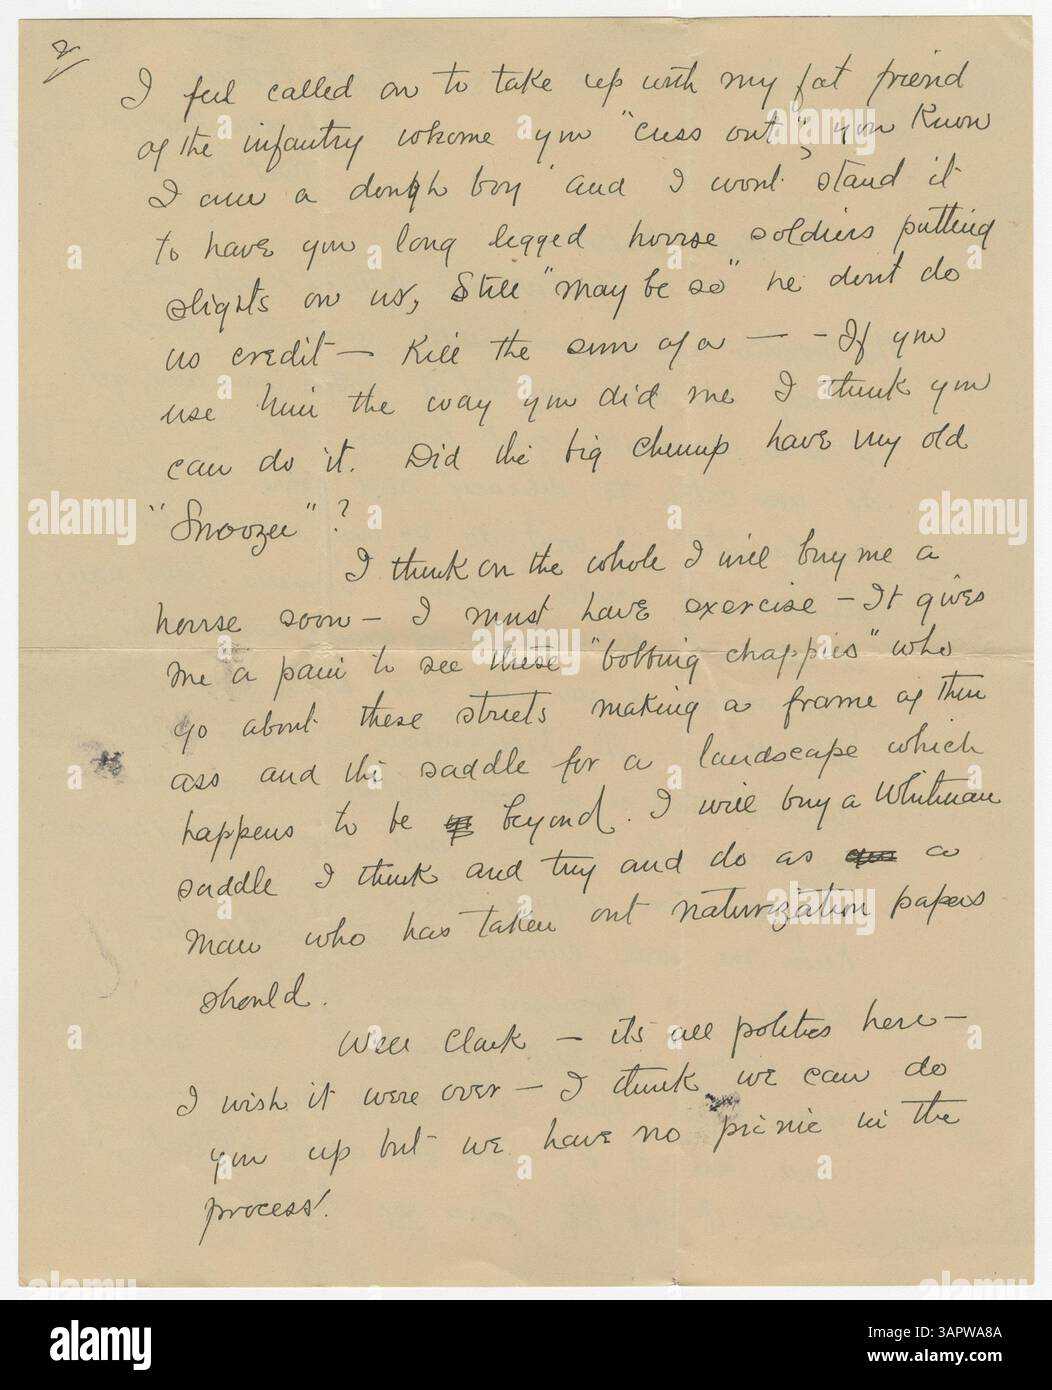 2/
I feel called on to take up with my fat friend
of the infantry whome you "cuss out", you Know
I am a dough boy and I wont stand it
to have you long legged horrse soldiers putting
slights on us, Still "may be so" he dont do
us credit — Kill the sun of a — - If you
use him the way you did me I think you
can do it. Did the big chump have my old
"Snoozer"?
I think on the whole I will buy me a
horrse soon — I must have exercise — It gives
me a pain to see these "bobbing chappies" who
go about these streets making a frame of thier
ass and the saddle for a landscape which
happens to be beyond. I will buy a Whitman
saddle I think and try and do as a
man who has taken out naturization papers
should.
Well Clark — its all politics here —
I wish it were over — I think we can do
you up but we have no picnic in the
process.
alamy
a
alamy
Image ID: 3APWA8A
www.alamy.com